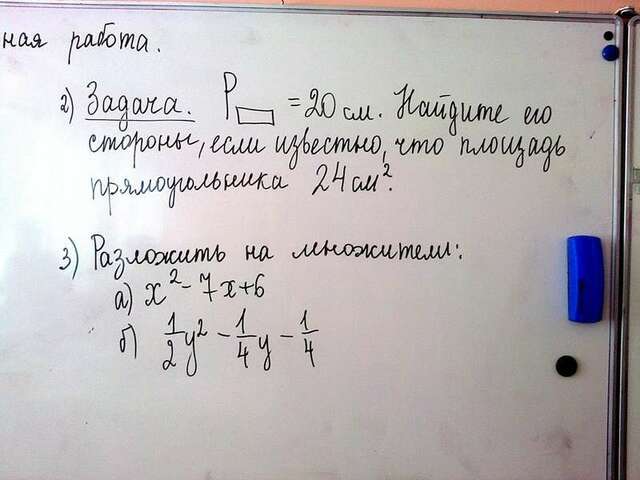 ная работа.
2) Задача. P▭ = 20 см. Найдите его
стороны, если известно, что площадь
прямоугольника 24 см².
3) Разложить на множители:
а) x² - 7x + 6
б) 1/2 y² - 1/4 y - 1/4